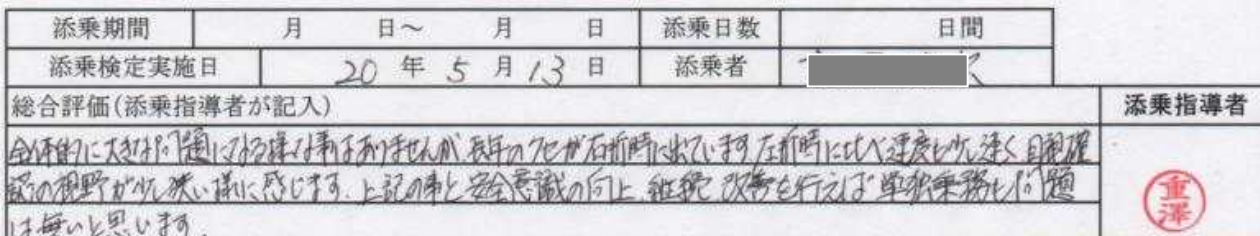 添乗期間 月 日～ 月 日 添乗日数 日間
添乗検定実施日 20年 5月 13日 添乗者
総合評価(添乗指導者が記入) 添乗指導者
全体的に大きな問題になる様な事はありませんが、長年のクセが右折時に出ています。左折時に比べ速度も少し速く、目視確
認の視野が少し狭い様に感じます。上記の事と安全意識の向上、継続、改善を行えば単独乗務も問題
は無いと思います。
重澤